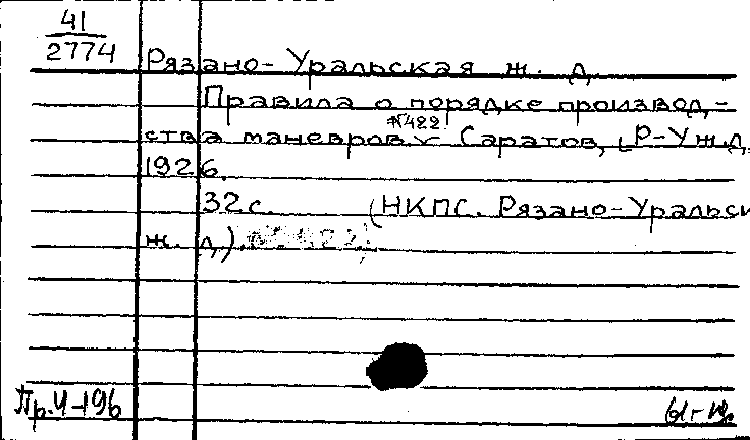 41
2774
Рязано-Уральская ж. д.
Правила о порядке производ-
№422
ства маневров Саратов, Р-Уж.д.
1926.
32 с. (НКПС. Рязано-Уральск
ж. д.)
Пр.Ч-196